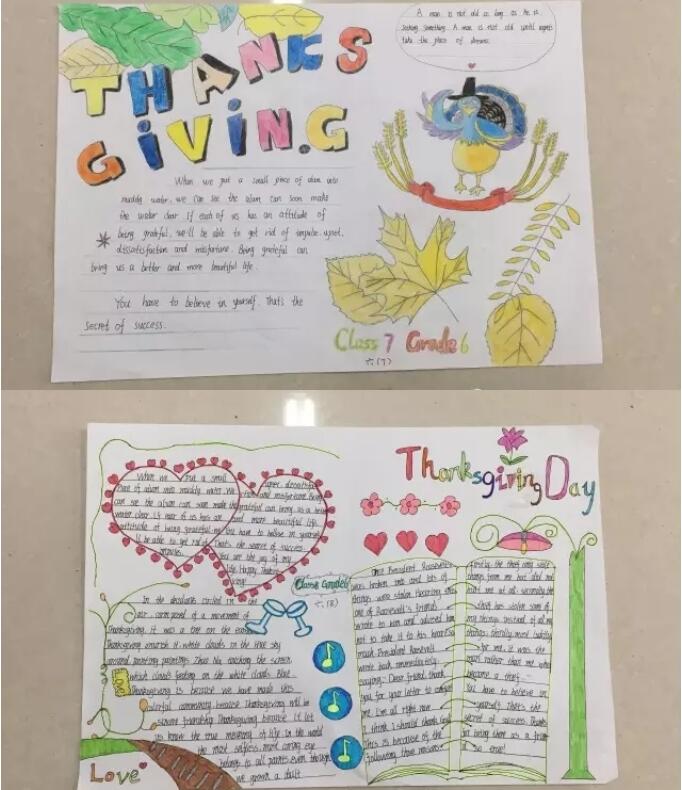 THANKS
GIVING.G
A man is not old as long as he is
seeking something. A man is not old until regrets
take the place of dreams.
When we put a small piece of alum into
muddy water, we can see the alum can soon make
the water clear. If each of us has an attitude of
being grateful, we'll be able to get rid of impulse, upset,
dissatisfaction and misfortune. Being grateful can
bring us a better and more beautiful life.
You have to believe in yourself. That's the
secret of success.
Class 7 Grade 6
六.(7)
Thanksgiving Day
When we put a small
piece of alum into muddy water. We
can see the alum can soon make the
water clear. If each of us has an
attitude of being grateful. we
'll be able to get rid of
and misfortune. Being
grateful can bring us a better
and more beautiful life.
You have to believe in yourself.
That's the secret of success.
are the joy of my
life. Happy Thanks-
giving!
Class Grade6
六.(8)
In the
air, composed of a movement of
Thanksgiving. It was a tree on the
Thanksgiving white clouds in the blue sky
around painting paintings. the screen,
which clouds floating on the white clouds. Blut
Thanksgiving is because we have made this
colorful community, because Thanksgiving will be
friendship. Thanksgiving, because it let
us know the true meaning of life. In the world
the most selfless, most caring eye
belongs to all parents even though
we grown a
Love
Once President Roosevelt
was broken into and lots of
things were stolen. Hearing this,
one of Roosevelt's friends
wrote to him and advised him
not to take it to his heart so
much. President Roosevelt
wrote back immediately,
saying: Dear friend, thank
you for your letter to comfort
me. I'm all right now.
I think I should thank God.
This is because of the
following three reasons:
Firstly, the thief only stole
things from me but did not
hurt me at all; secondly, the
thief has stolen some of
my things instead of all my
things; thirdly, most luckily
for me, it was the
man rather than me who
became a thief.
You have to believe in
yourself. That's the
secret of success. Thanks
for being there as a friend
so true!